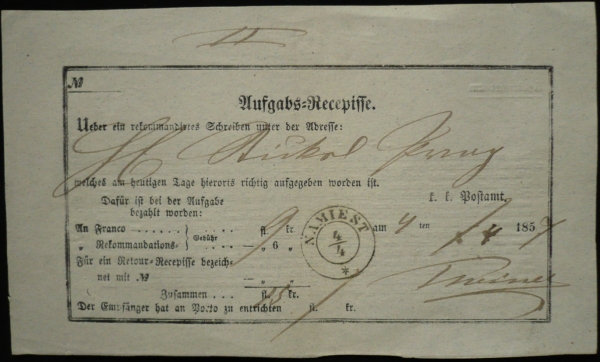 №
Aufgabs-Recepisse.
Ueber ein rekommandirtes Schreiben unter der Adresse:
Prag
welches am heutigen Tage hierorts richtig aufgegeben worden ist.
Dafür ist bei der Aufgabe
bezahlt worden:
k. k. Postamt.
An Franco — fl. 9 kr.
am 4 ten 185
„ Rekommandations- Gebühr — „ 6 „
NAMIEST
4/4
*
Für ein Retour-Recepisse bezeich-
net mit № — „ „
Zusammen ... fl. 15 kr.
Der Empfänger hat an Porto zu entrichten fl. kr.